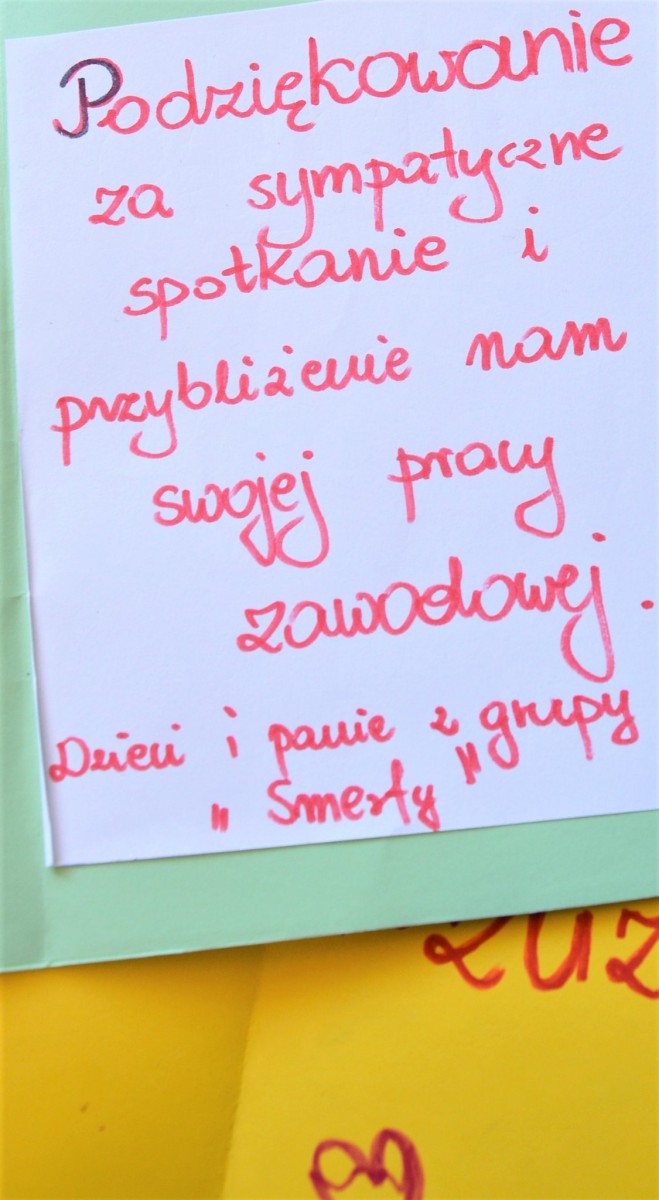 Podziękowanie
za sympatyczne
spotkanie i
przybliżenie nam
swojej pracy
zawodowej.
Dzieci i panie z grupy
"Smerfy"